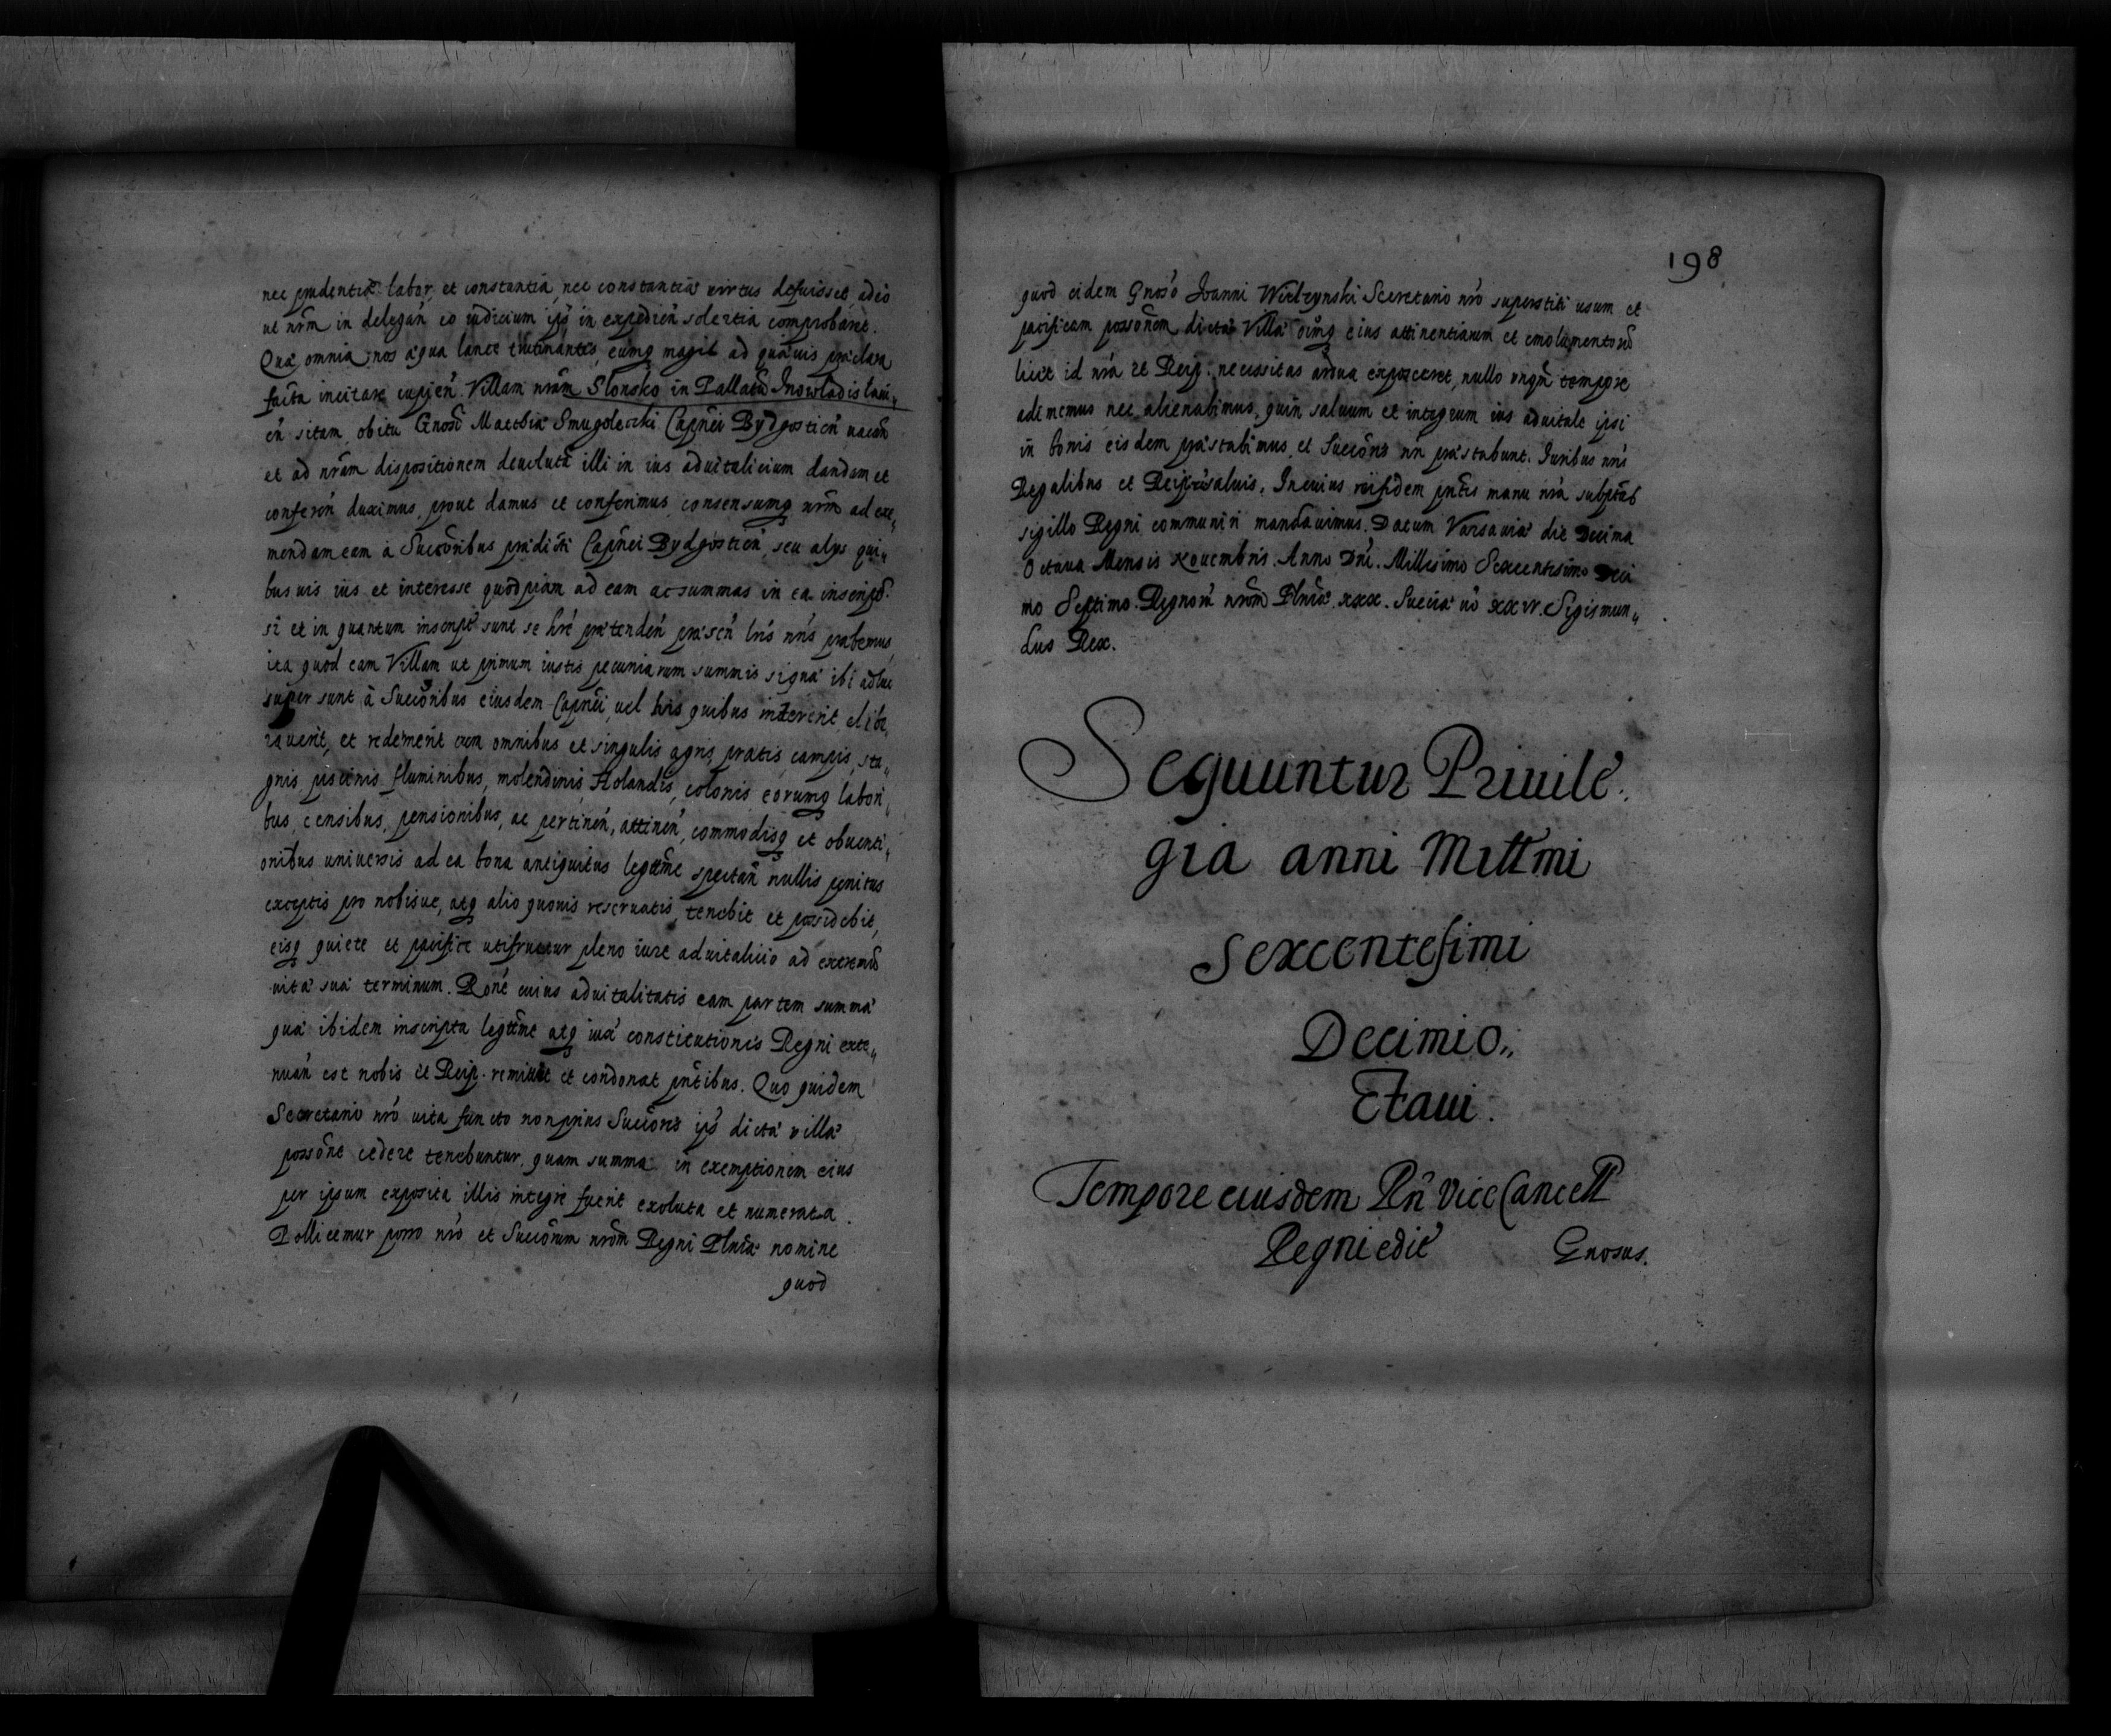 nec prudentiæ labor, et constantia, nec constantiæ virtus defuisset, adeo
ut nrm̃ in delegan̄ eo iudicium ips̄ in expedien̄ solertia comprobaret.
Quæ omnia nos æqua lance trutinantes, eumq̃ magis ad quævis præclara
facta incitare cupien̄. Villam nrãm Slonsko in Pallatũ Inowladislavi„
eñ sitam, obitu Gnosi Matthiæ Smugolecki Capnei Bydgostien̄ vacan̄
et ad nrãm dispositionem devolutã illi in ius advitalicium dandam et
conferen̄ duximus, prout damus et conferimus, consensumq̃ nrm̃ ad exi„
mendam eam à Succõribus prædicti Capnei Bydgostien̄, seu alys qui„
busvis ius et interesse quodpiam ad eam ac summas in ea inscript.
si et in quantum inscriptæ sunt se hre prætenden̄ præsen̄ lris nris præbemus,
ita quod eam Villam ut primum iustis pecuniarum summis siqua ibi adhuc
super sunt à Succõribus eiusdem Capnei, vel his quibus intererit, elibe„
raverit, et redemerit cum omnibus et singulis agris, pratis, campis, sta„
gnis, piscinis, fluminibus, molendinis, Holandis, colonis eorumq̃ labori„
bus, censibus, pensionibus, ac pertinen̄, attinen̄, commodisq̃ et obventi„
onibus universis ad ea bona antiquitus legittme spectan̄ nullis penitus
exceptis pro nobisve, atq̃ alio quovis reservatis, tenebit et possidebit,
eisq̃ quiete et pacifice utifruetur pleno iure advitalicio ad extremũ
vitæ suæ terminum. Rone cuius advitalitatis eam partem summæ
quæ ibidem inscripta legittme atq̃ iuxta constitutionis Regni exte„
nuan̄ est nobis et Reip. remittit et condonat pntibus. Quo quidem
Secretario nro vita functo non prius Succõres ips̄ dictæ villæ
possõne cedere tenebuntur, quam summa in exemptionem eius
per ipsum exposita illis integre fuerit exoluta et numerata.
Pollicemur porro nro et Succõrum nrõm Regni Plniæ nomine
quod
198
quod eidem Gnoso Joanni Wielzynski Secretario nro superstiti usum et
pacificam possõnem dictæ Villæ oiũmq̃ eius attinentiarum et emolumentorũ
licet id nra et Reip. necessitas ardua exposceret, nullo unqm̃ tempore
adememus nec alienabimus, quin salvum et integrum ius advitale ipsi
in bonis eisdem præstabimus, et Succõres nri præstabunt. Iuribus nris
Regalibus et Reip. salvis. In cuius rei fidem pntes manu nra subptas
sigillo Regni communiri mandavimus. Datum Varsaviæ die Decima
Octava Mensis Novembris. Anno Dni. Millesimo Sexcentesimo Deci
mo Septimo. Regnorũ nrõm Plniæ xxx. Sueciæ vo xxiv. Sigismun„
dus Rex.
Sequuntur Privile„
gia anni Millmi
sexcentesimi
Decimio„
Ctavi.
Tempore eiusdem Rñ ViceCancell
Regni edit̃
Gnosus.